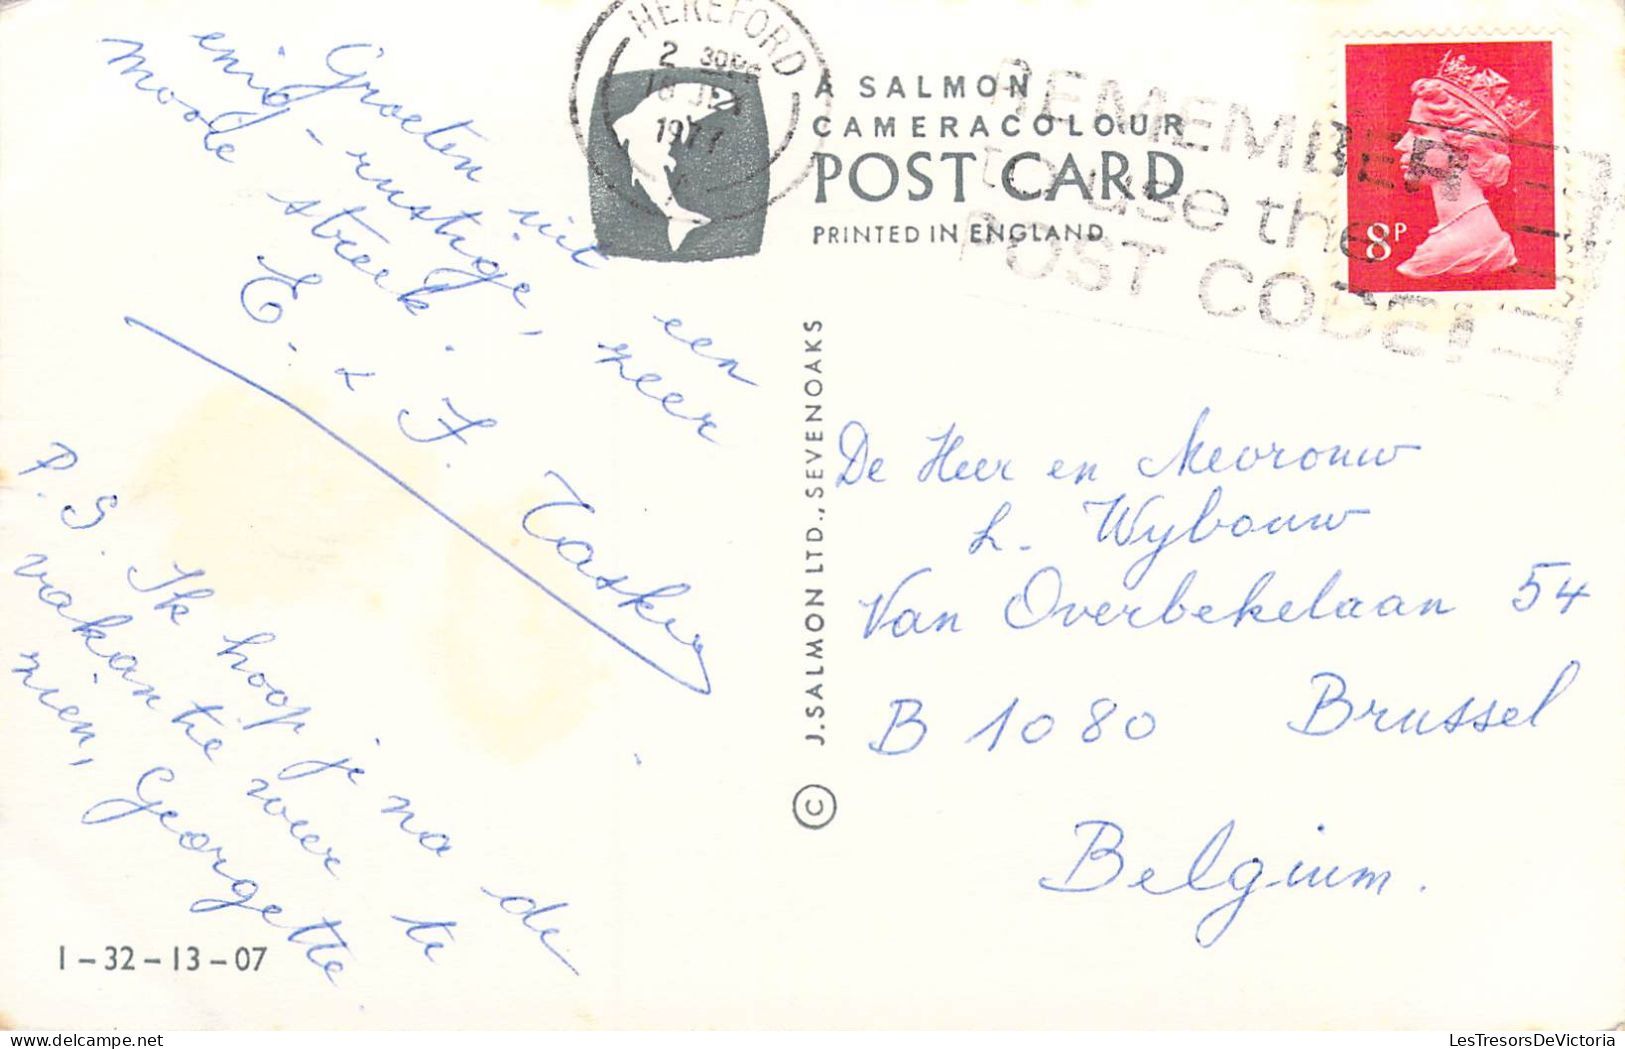 Groeten uit een
enig-rustige, zeer
mooie streek.
E. & F. Taskin
P.S. Ik hoop je na de
vakantie weer te
zien, Georgette
1-32-13-07
HEREFORD
2 30PM
1977
A SALMON
CAMERACOLOUR
POST CARD
PRINTED IN ENGLAND
REMEMBER
to use the
POST CODE
8P
© J. SALMON LTD., SEVENOAKS
De Heer en Mevrouw
L. Wybouw
Van Overbekelaan 54
B 1080 Brussel
Belgium.
LesTresorsDeVictoria